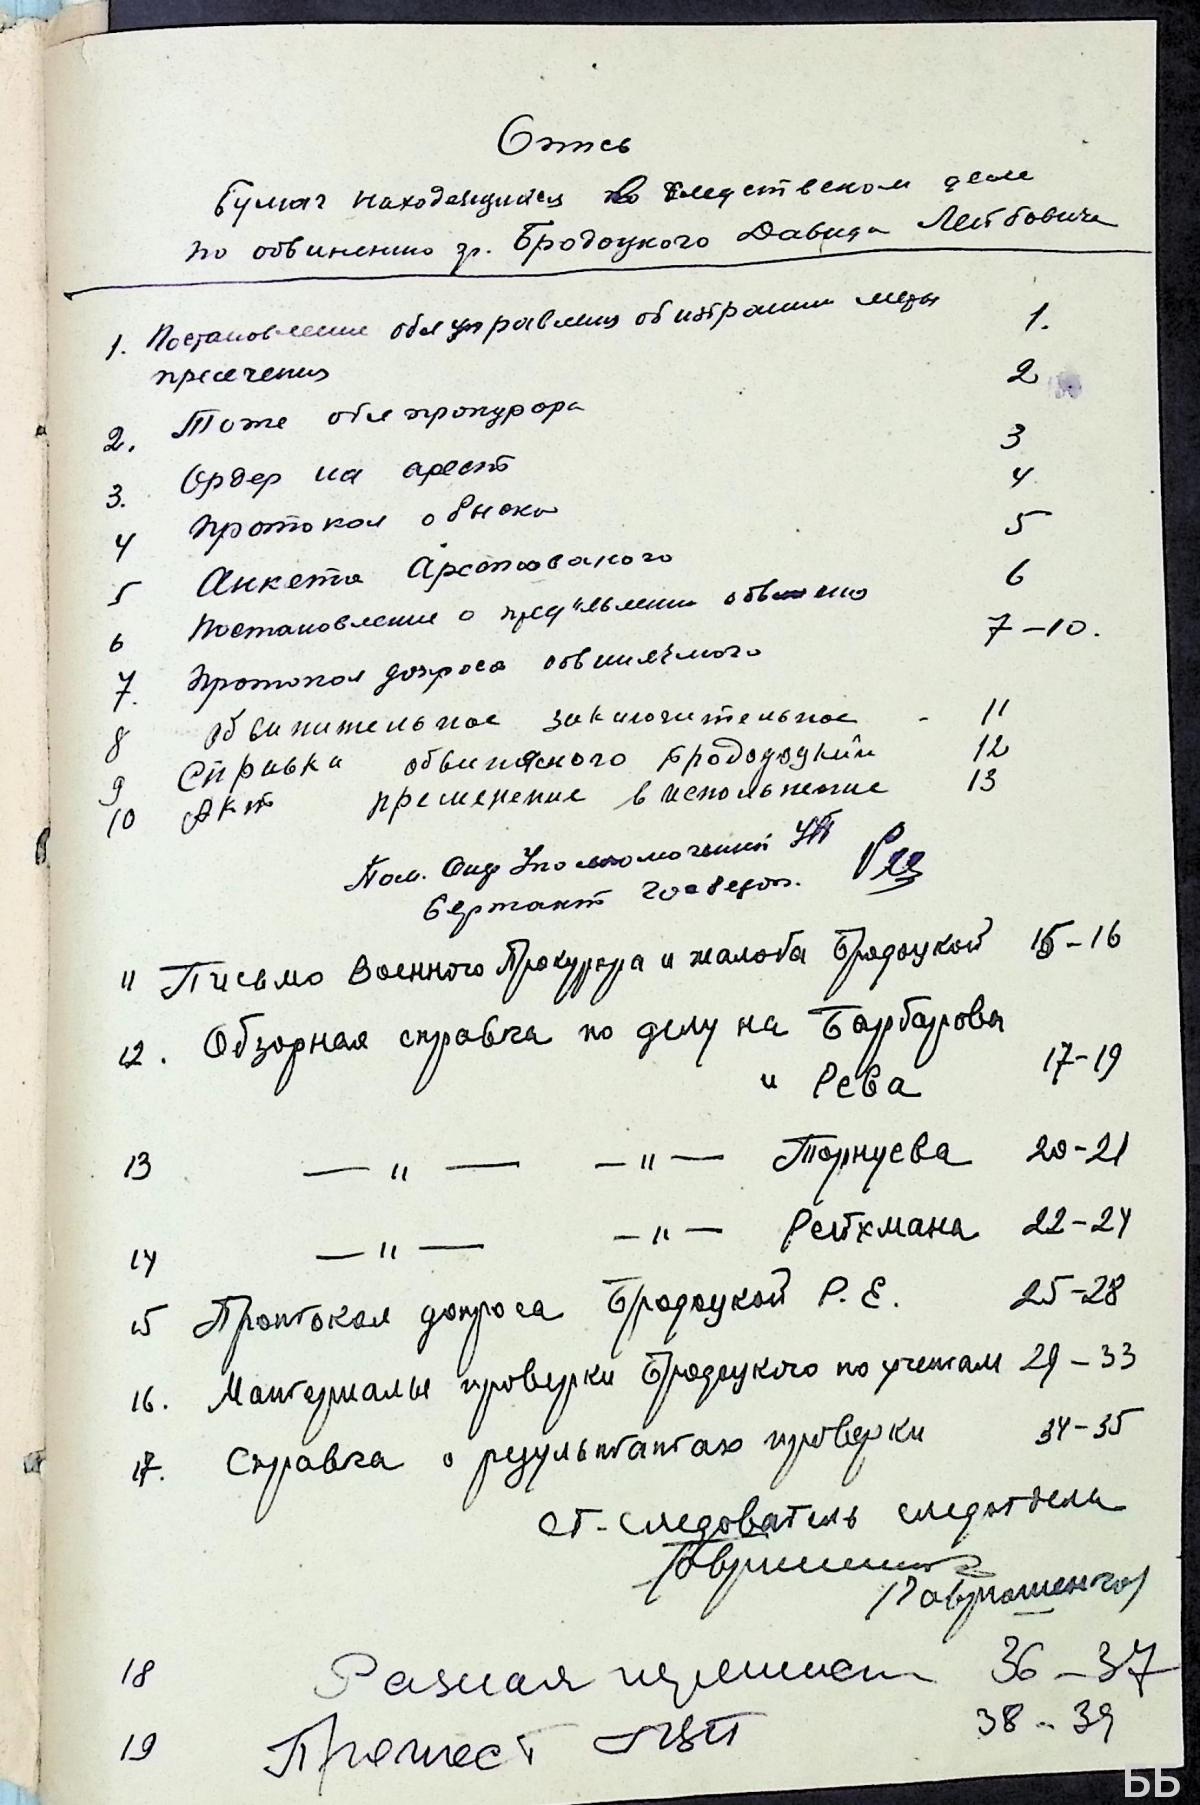 Опись
Бумаг находящийся во следственском деле
по обвинению гр. Бродоцкого Давида Лейбовича
1. Постановление облуправления об избрании меры 1.
пресечения
2. Тоже облпрокурора 2
3. Ордер на арест 3
4 Протокол обыска 4
5 Анкета Арестованого 5
6 Постановление о пред"явлении обвинено 6
7. Протокол допроса обвиняемого 7-10.
8 Обвинительное заключительное - 11
9 Справка обвиняеного Брододоцкий 12
10 Акт пременение в исполнение 13
Пом. Опер Уполномоченный УГБ
Сержант госбезоп.
11 Письмо Военного Прокурора и жалоба Бродоцкой 15-16
12. Обзорная справка по делу на Барбарова
и Рева 17-19
13 — " — — " — Торнуева 20-21
14 — " — — " — Рейхмана 22-24
15 Протокол допроса Бродоцкой Р. Е. 25-28
16. Материалы проверки Бродоцкого по учетам 29-33
17. Справка о результатах проверки 34-35
Ст-следователь следотдела
/Гавриленко/
18 Разная переписка 36-37
19 Протест ГВП 38-39
ЬЬ